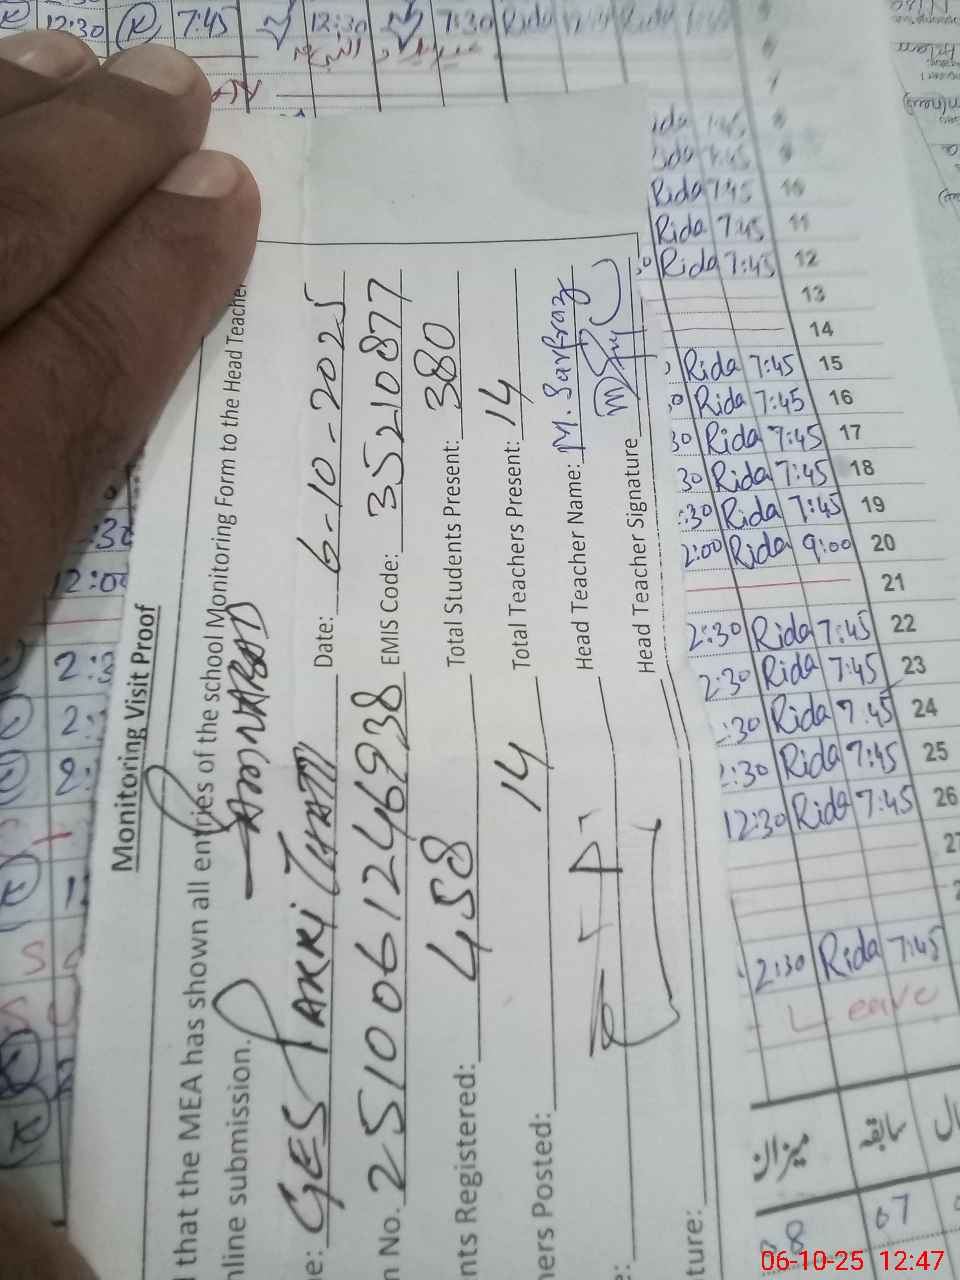 Monitoring Visit Proof
that the MEA has shown all entries of the school Monitoring Form to the Head Teacher
nline submission.
e: GES PAKKI THATTI Date: 6-10-2025
n No. 2510061246938 EMIS Code: 35210877
nts Registered: 458 Total Students Present: 380
hers Posted: 14 Total Teachers Present: 14
e: Head Teacher Name: M. Sarfraz
ture: Head Teacher Signature
12:30 7:45 12:30 7:30 Rida
Rida 7:45 10
Rida 7:45 11
Rida 7:45 12
13
14
Rida 7:45 15
Rida 7:45 16
30 Rida 7:45 17
30 Rida 7:45 18
:30 Rida 7:45 19
2:00 Rida 9:00 20
21
2:30 Rida 7:45 22
2:30 Rida 7:45 23
:30 Rida 7:45 24
2:30 Rida 7:45 25
12:30 Rida 7:45 26
27
2:30 Rida 7:45
Leave
میزان سابقہ
8 67
06-10-25 12:47